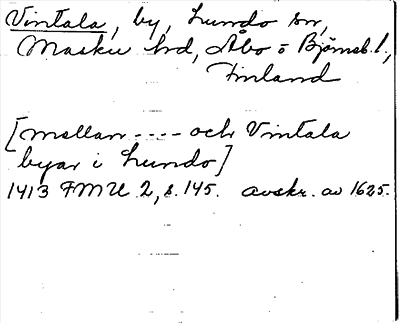 Vintala, by, Lundo sn,
Masku hd, Åbo o Björneb. l.,
Finland
[mellan ---- och Vintala
byar i Lundo]
1413 FMU 2, s. 145. avskr. av 1625.